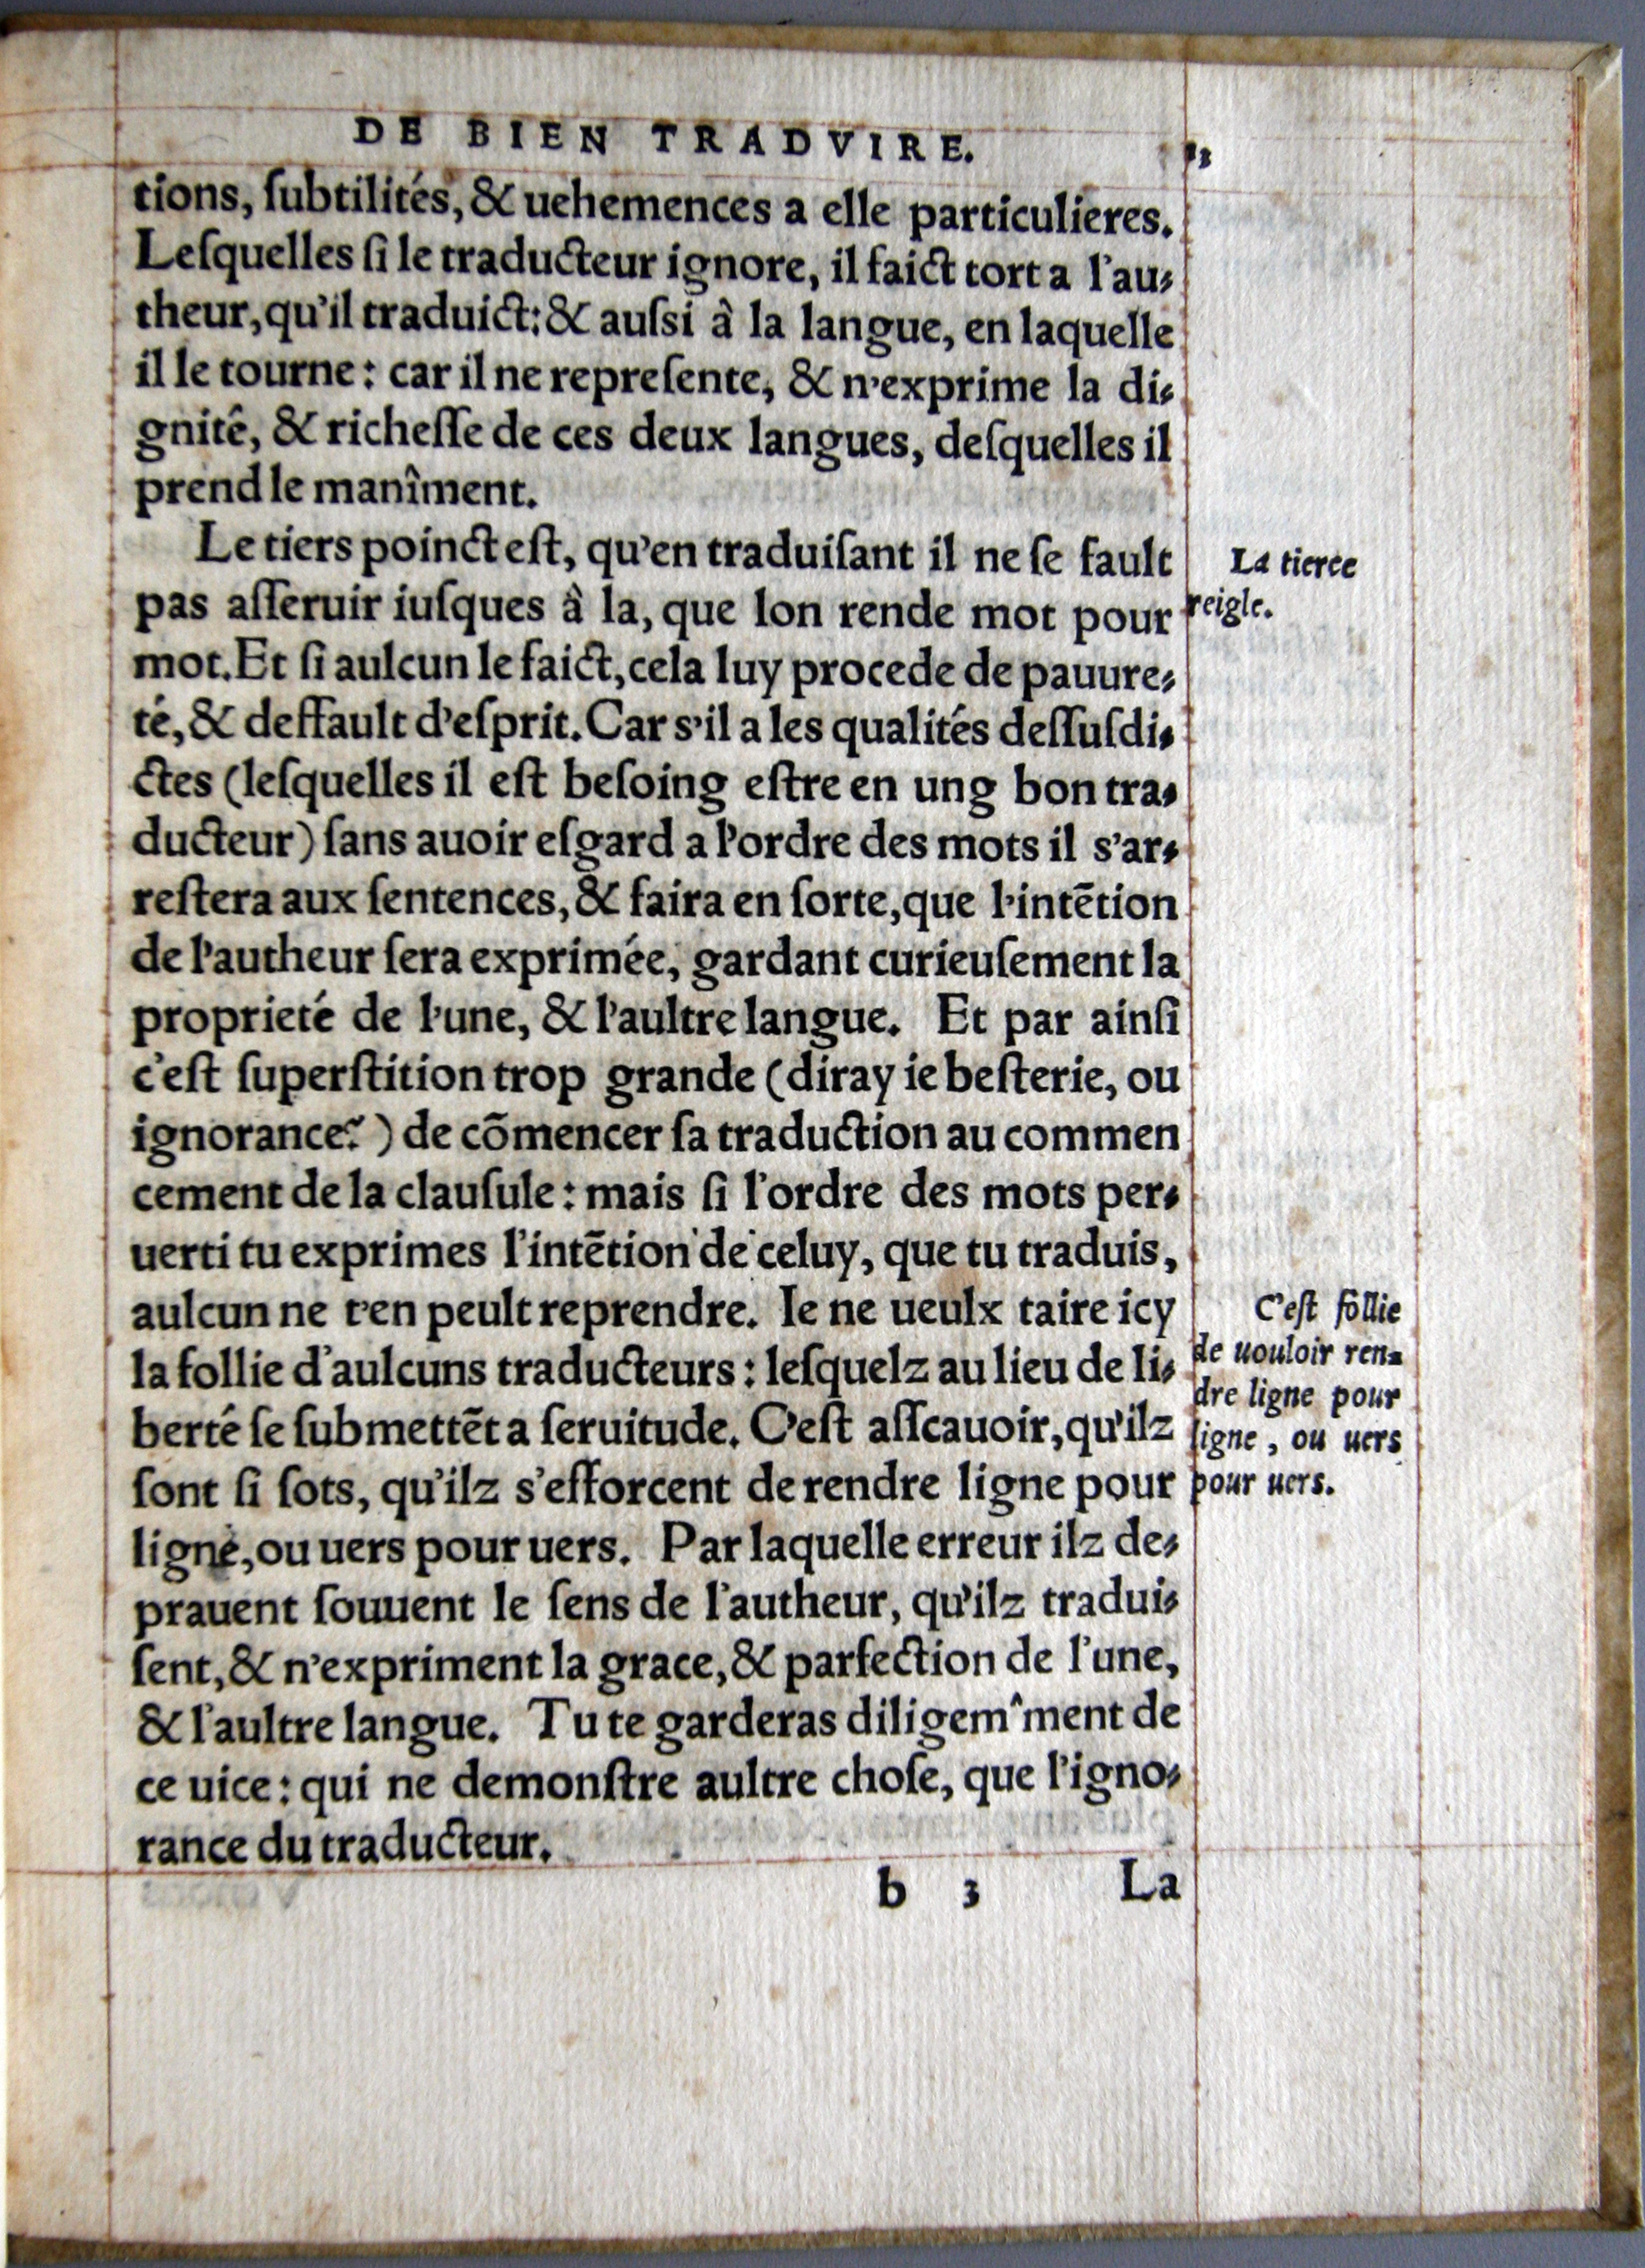 DE BIEN TRADVIRE.
13
tions, ſubtilités, & uehemences a elle particulieres.
Leſquelles ſi le traducteur ignore, il faict tort a l'au⸗
theur, qu'il traduict: & auſsi à la langue, en laquelle
il le tourne: car il ne repreſente, & n'exprime la di⸗
gnitê, & richeſſe de ces deux langues, deſquelles il
prend le manîment.
Le tiers poinct eſt, qu'en traduiſant il ne ſe fault
pas aſſeruir iuſques à la, que lon rende mot pour
mot. Et ſi aulcun le faict, cela luy procede de pauure⸗
té, & deffault d'eſprit. Car s'il a les qualités deſſuſdi⸗
ctes (leſquelles il eſt beſoing eſtre en ung bon tra⸗
ducteur) ſans auoir eſgard a l'ordre des mots il s'ar⸗
reſtera aux ſentences, & faira en ſorte, que l'intētion
de l'autheur ſera exprimée, gardant curieuſement la
proprieté de l'une, & l'aultre langue. Et par ainſi
c'eſt ſuperſtition trop grande (diray ie beſterie, ou
ignorance?) de cōmencer ſa traduction au commen
cement de la clauſule: mais ſi l'ordre des mots per⸗
uerti tu exprimes l'intētion de celuy, que tu traduis,
aulcun ne t'en peult reprendre. Ie ne ueulx taire icy
la follie d'aulcuns traducteurs: leſquelz au lieu de li⸗
berté ſe ſubmettēt a ſeruitude. C'eſt aſſcauoir, qu'ilz
ſont ſi ſots, qu'ilz s'efforcent de rendre ligne pour
ligne, ou uers pour uers. Par laquelle erreur ilz de⸗
prauent ſouuent le ſens de l'autheur, qu'ilz tradui⸗
ſent, & n'expriment la grace, & parfection de l'une,
& l'aultre langue. Tu te garderas diligem^ment de
ce uice: qui ne demonſtre aultre choſe, que l'igno⸗
rance du traducteur.
b 3 La
La tierce
reigle.
C'eſt follie
de uouloir ren⸗
dre ligne pour
ligne, ou uers
pour uers.